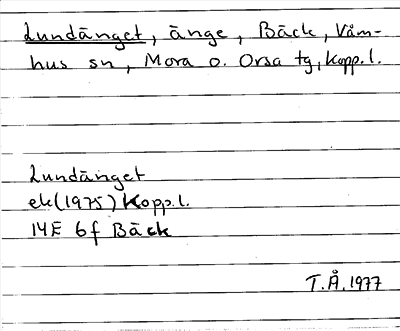 Lundänget, änge, Bäck, Våm-
hus sn, Mora o. Orsa tg, Kopp.l.
Lundänget
ek(1975) Kopp.l.
14E 6f Bäck
T.Å. 1977